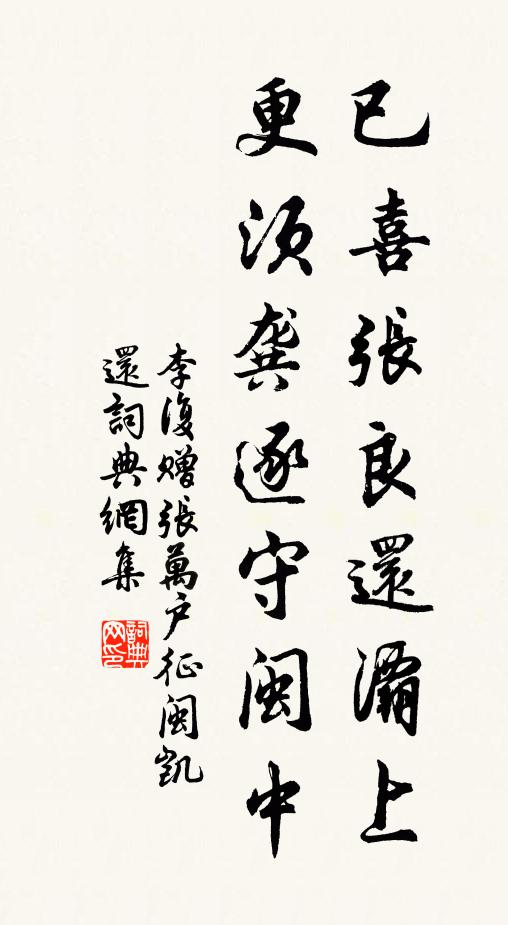 已喜張良還灞上
更須龔遂守閩中
李復贈張萬戶征閩凱
還詞典網集
詞典網印